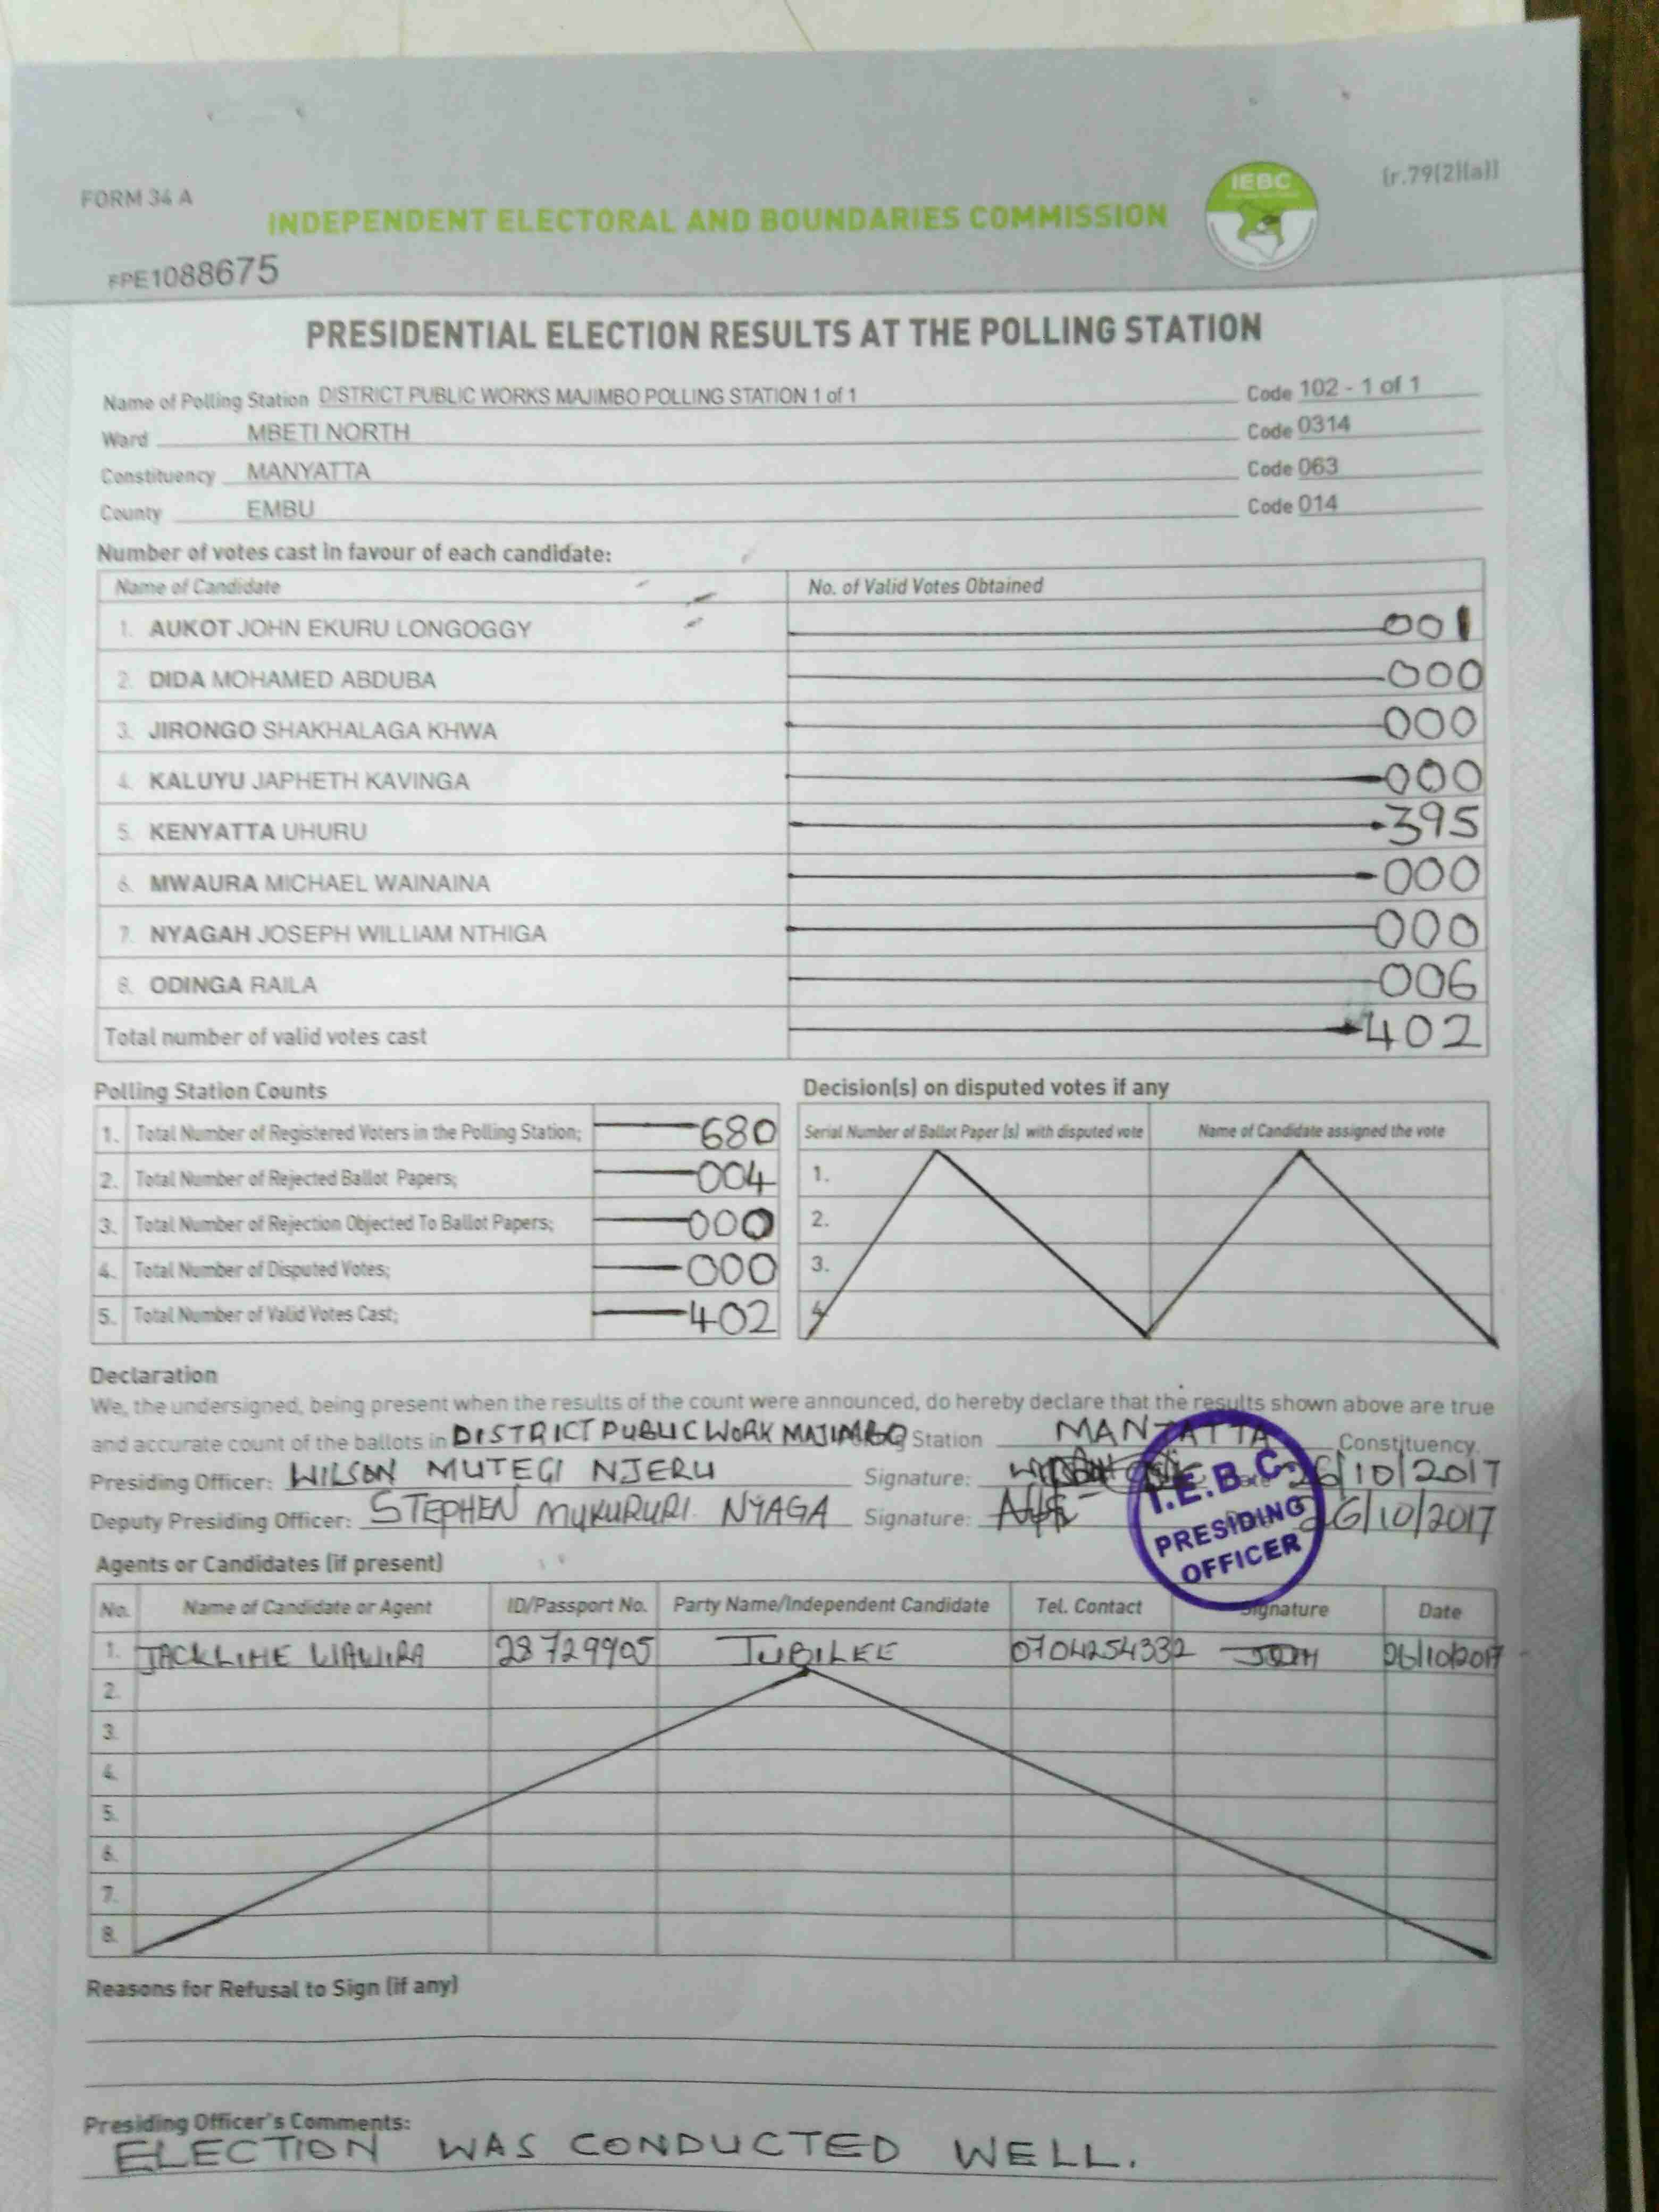 FORM 34 A
IEBC
(r.79(2)(a))
INDEPENDENT ELECTORAL AND BOUNDARIES COMMISSION
FPE1088675
PRESIDENTIAL ELECTION RESULTS AT THE POLLING STATION
Name of Polling Station DISTRICT PUBLIC WORKS MAJIMBO POLLING STATION 1 of 1 Code 102 - 1 of 1
Ward MBETI NORTH Code 0314
Constituency MANYATTA Code 063
County EMBU Code 014
Number of votes cast in favour of each candidate:
Name of Candidate No. of Valid Votes Obtained
1. AUKOT JOHN EKURU LONGOGGY 001
2. DIDA MOHAMED ABDUBA 000
3. JIRONGO SHAKHALAGA KHWA 000
4. KALUYU JAPHETH KAVINGA 000
5. KENYATTA UHURU 395
6. MWAURA MICHAEL WAINAINA 000
7. NYAGAH JOSEPH WILLIAM NTHIGA 000
8. ODINGA RAILA 006
Total number of valid votes cast 402
Polling Station Counts
1. Total Number of Registered Voters in the Polling Station; 680
2. Total Number of Rejected Ballot Papers; 004
3. Total Number of Rejection Objected To Ballot Papers; 000
4. Total Number of Disputed Votes; 000
5. Total Number of Valid Votes Cast; 402
Decision(s) on disputed votes if any
Serial Number of Ballot Paper (s) with disputed vote Name of Candidate assigned the vote
1.
2.
3.
4.
Declaration
We, the undersigned, being present when the results of the count were announced, do hereby declare that the results shown above are true
and accurate count of the ballots in DISTRICT PUBLIC WORK MAJIMBO Station MANYATTA Constituency.
Presiding Officer: WILSON MUTEGI NJERU Signature: 26/10/2017
Deputy Presiding Officer: STEPHEN MUKURURI NYAGA Signature: 26/10/2017
I.E.B.C
PRESIDING
OFFICER
Agents or Candidates (if present)
No. Name of Candidate or Agent ID/Passport No. Party Name/Independent Candidate Tel. Contact Signature Date
1. JACKLINE WAWIRA 28729905 JUBILEE 0704254332 26/10/2017
2.
3.
4.
5.
6.
7.
8.
Reasons for Refusal to Sign (if any)
Presiding Officer's Comments:
ELECTION WAS CONDUCTED WELL.